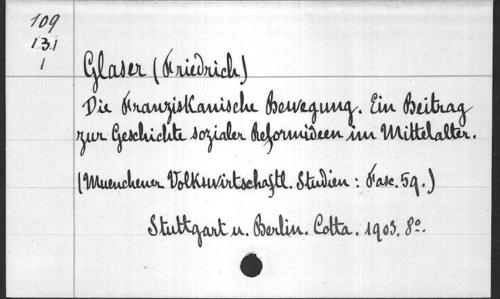 109
131
1
Glaser (Friedrich)
Die Franziskanische Bewegung. Ein Beitrag
zur Geschichte sozialer Reformideen im Mittelalter.
(Muenchener Volkswirtschaftl. Studien: Fasc. 59.)
Stuttgart u. Berlin. Cotta. 1903. 8º.